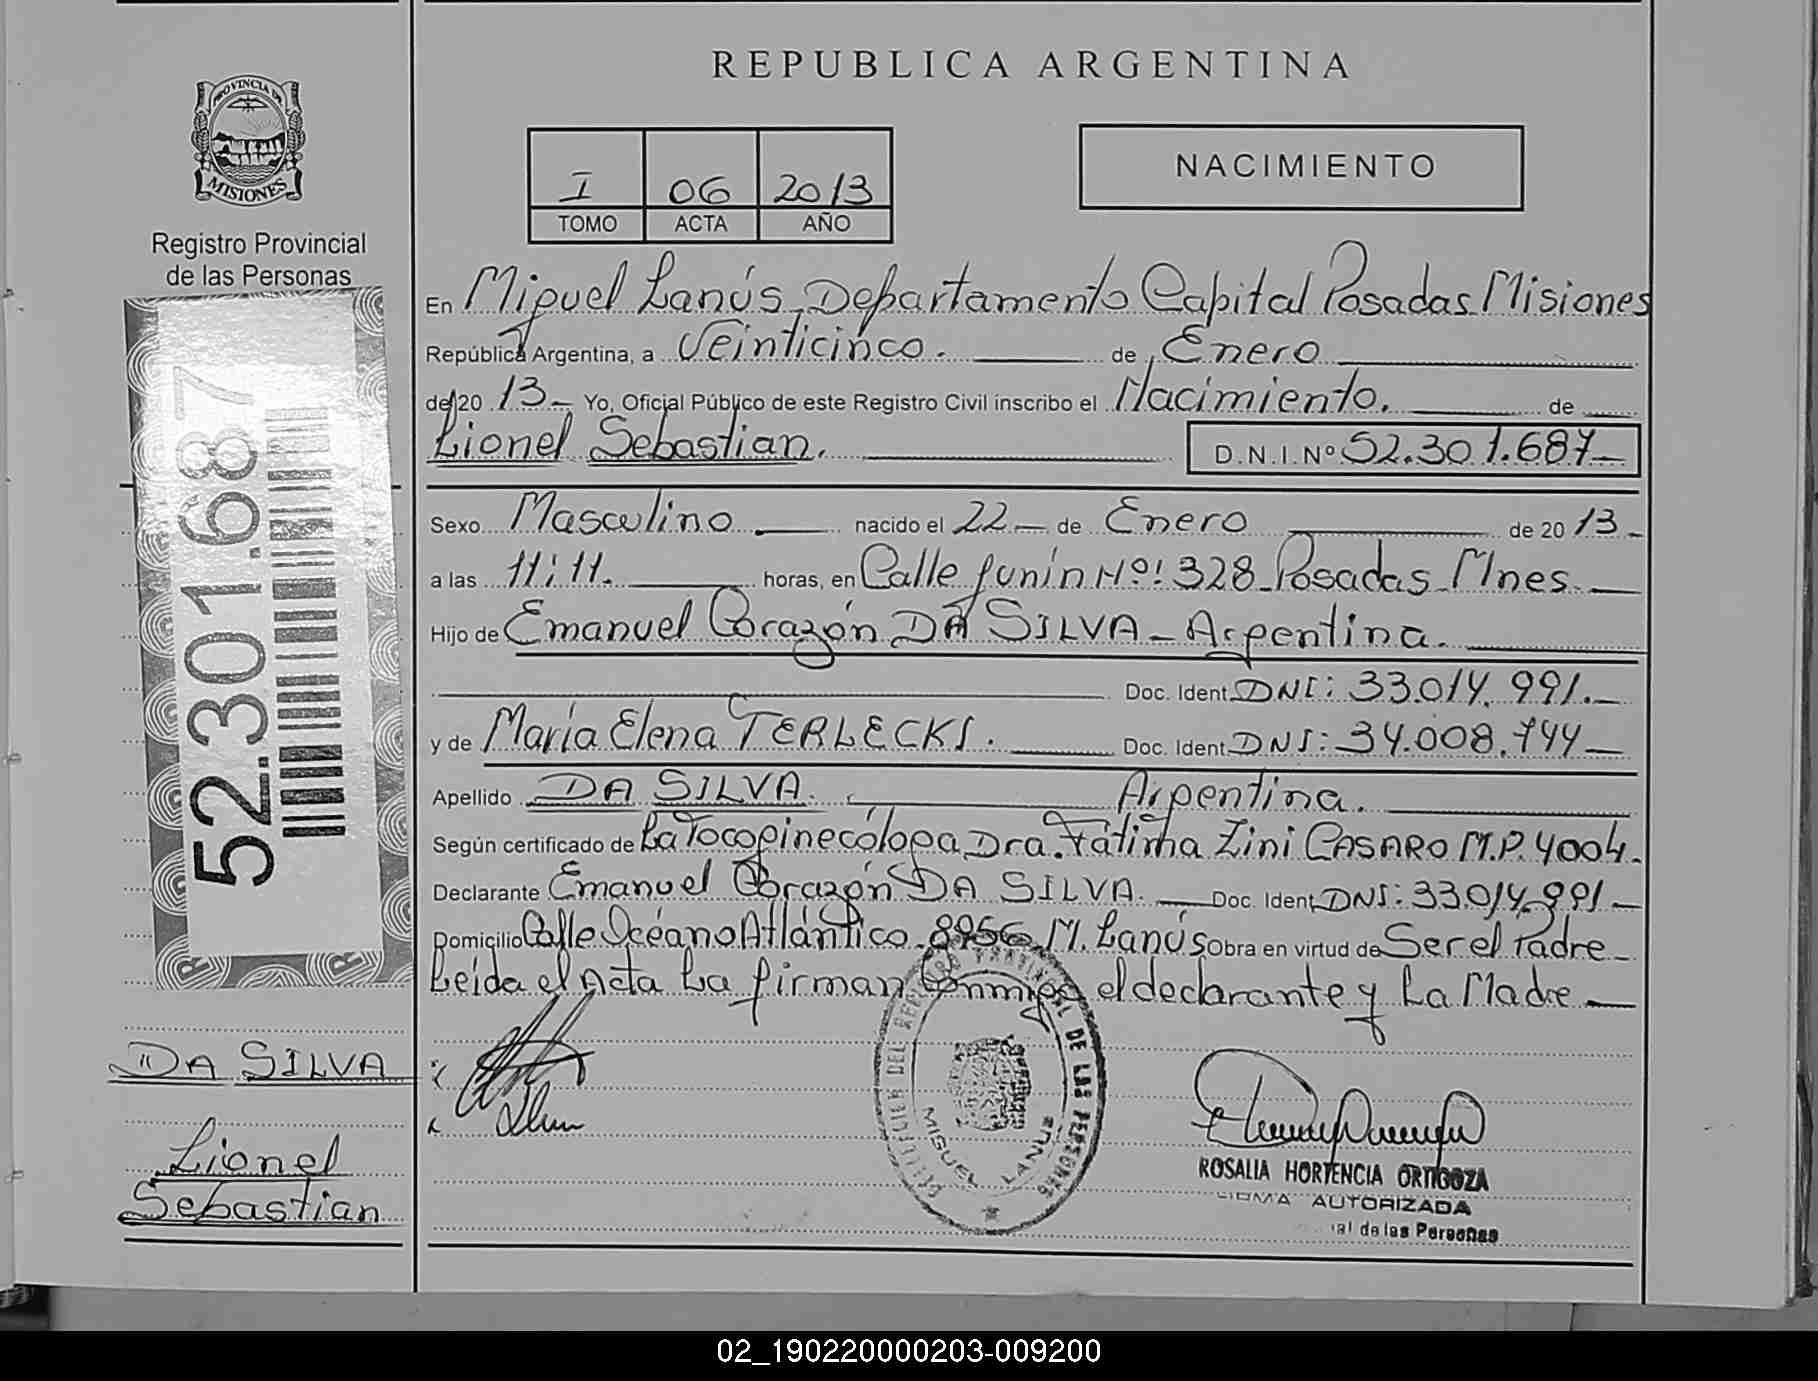 REPUBLICA ARGENTINA
PROVINCIA DE
MISIONES
Registro Provincial
de las Personas
I 06 2013
TOMO ACTA AÑO
NACIMIENTO
En Miguel Lanús Departamento Capital Posadas Misiones
República Argentina, a Veinticinco. de Enero
de 20 13 Yo, Oficial Público de este Registro Civil inscribo el Nacimiento. de
Lionel Sebastian. D.N.I.Nº 52.301.687
Sexo Masculino nacido el 22 de Enero de 20 13
a las 11:11. horas, en Calle Junín Nº: 328 Posadas Mnes.
Hijo de Emanuel Corazón DA SILVA - Argentina.
Doc. Ident. DNI: 33.014.991.
y de María Elena TERLECKI. Doc. Ident. DNI: 34.008.744
Apellido DA SILVA. Argentina.
Según certificado de La Tocoginecóloga Dra. Fátima Zini CASARO M.P. 4004.
Declarante Emanuel Corazón DA SILVA. Doc. Ident. DNI: 33.014.991
Domicilio Calle Océano Atlántico 8956 M. Lanús Obra en virtud de Ser el Padre
Leída el Acta La firman Conmigo el declarante y La Madre
52.301.687
"DA SILVA
Lionel
Sebastian
DEL REGISTRO PROVINCIAL DE LAS PERSONAS
MIGUEL LANUS
ROSALIA HORTENCIA ORTIGOZA
FIRMA AUTORIZADA
de las Personas
02_190220000203-009200